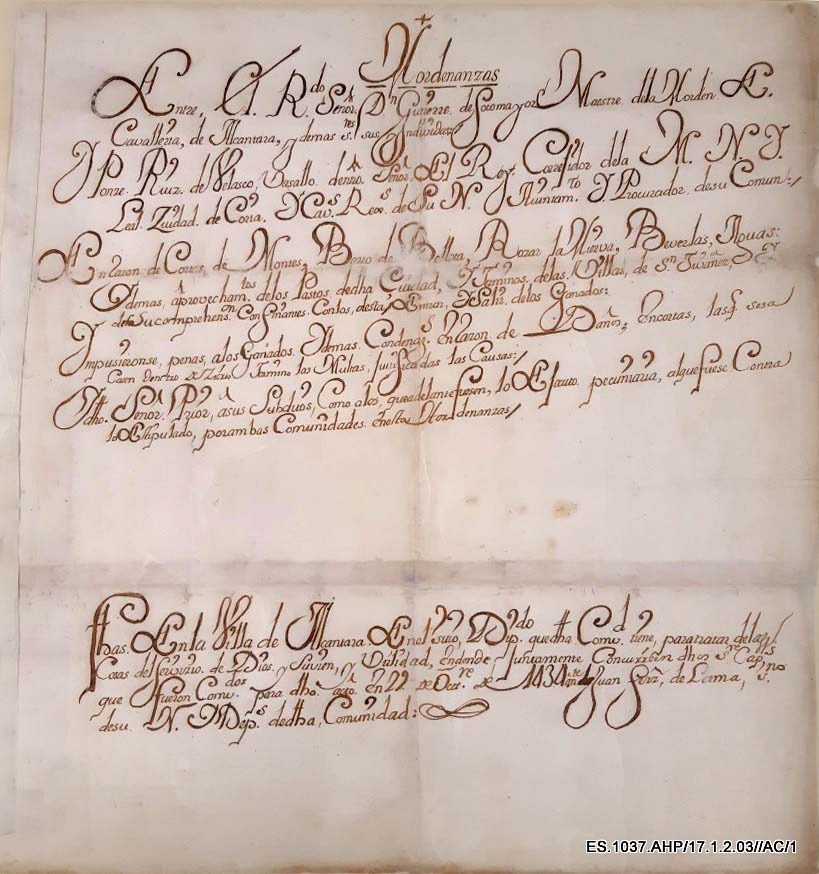 Hordenanzas
Entre, El Rdo Señor. Dn Gutierre. de Sotomayor Maestre. dela Horden. E.
Cavalleria, de Alcantara, y demas sus Yndividuos/
Y Ponze. Ruiz. del Velasco, Vasallo. de ntro. Señor. El Rey. Corregidor dela M. N. Y.
Leal. Ziudad. de Coria, Y Cavs Rexs. de Su N. Ayuntamto Y Procurador. de su Comun:/
En razon de Cortes, de Montes, Barro de Bellota, Rozar la Nueva, Beverlas, Aguas:
Y demas, aprovechamtos delos Pastos. dedha Ciudad, Y Terminos. delas Villas, de Sn Juañez,
de su comprehenson Confinantes. Con los, desta, Entrar, Y Salir. delos Ganados:
Ympusieronse, penas, alos Ganados. Y demas. Condenas. En razon de Daños, en cortas, lasq. sera
Caen dentro de Zitios Termino las Multas, Justificadas las Causas:/
A dho. Señor. Prior, asus Subduos, Como alos, que adelante fuesen, lo Efecuto. pecuniaria, alque fuese. Contra
lo Estipulado, por ambas Comunidades. en estas Hordenanzas/
fhas. En la Villa de Alcantara. En el sitio, Dip. quedha Comd. tiene, para tratar delas
Cosas del Servizio. de Dios. y Su vien, y Utilidad, en donde Juntamente Concurrieron dhos sres Caps
que fueron Comdos para dho. Caso. en 22 de Dezre. de 1434 ante Juan Frrz, de Lerma, sno.
desu. N. M Deps dedha, Comunidad:
ES.1037.AHP/17.1.2.03//AC/1